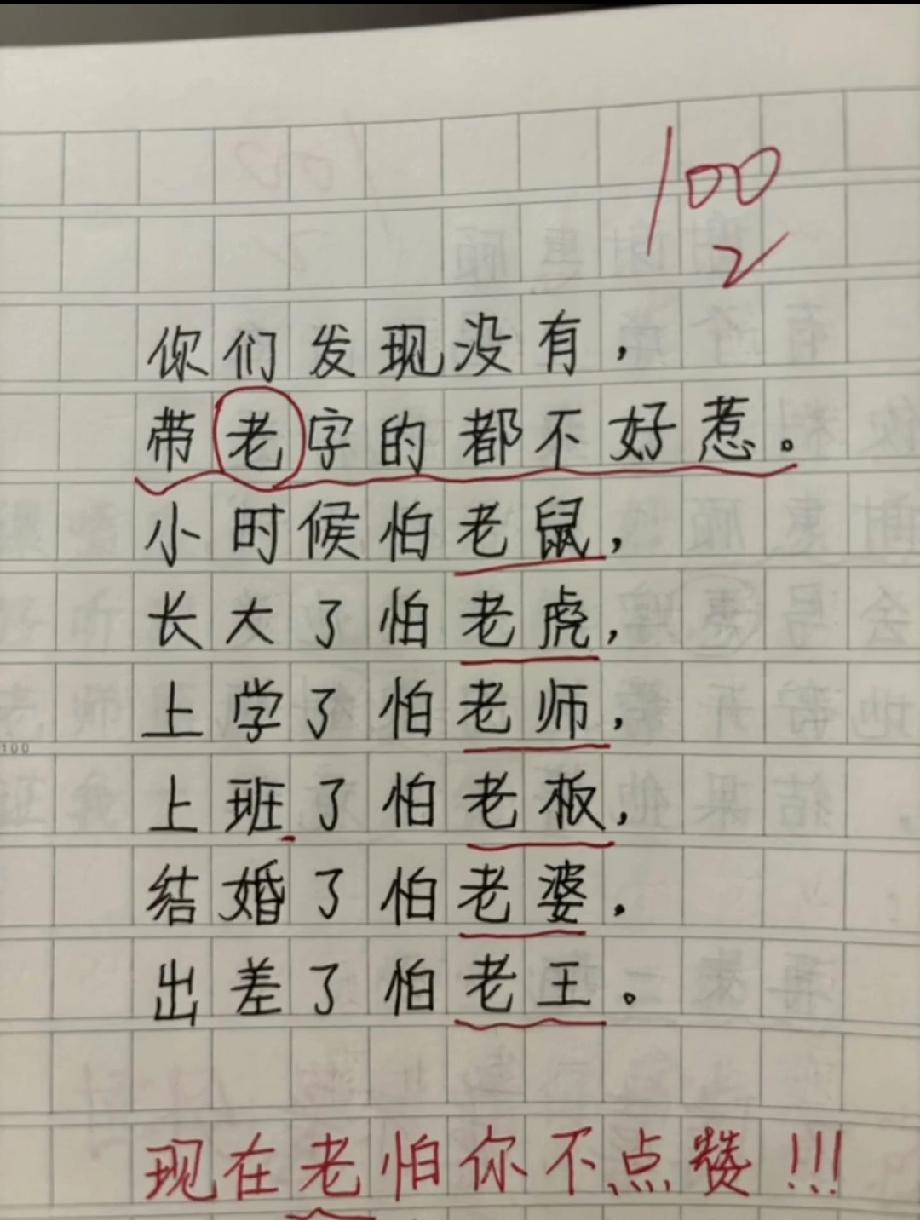 100
2
你们发现没有，
带老字的都不好惹。
小时候怕老鼠，
长大了怕老虎，
上学了怕老师，
上班了怕老板，
100
结婚了怕老婆，
出差了怕老王。
现在老怕你不点赞!!!